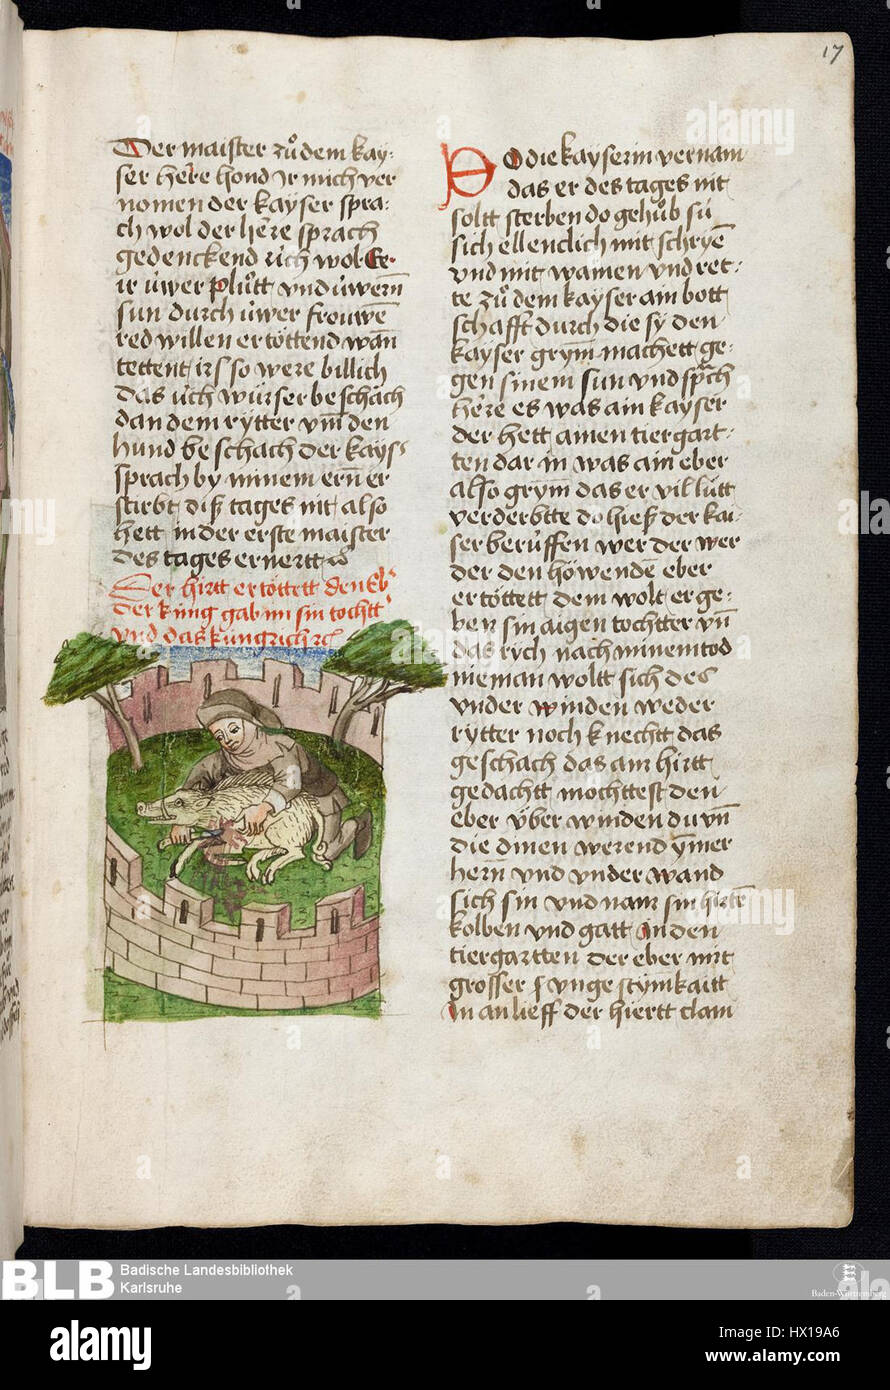 17
Der maister zů dem kay⸗
ser here hond ir mich ver
nomen der kayser spra⸗
ch wol der here sprach
gedenckend üch wol Er⸗
ir üwer plůtt vnd üwern̄
sun durch üwer frouwē
red willen ertöttend wan̄
tettent irs so were billich
das üch würser beschäch
dan dem rytter vm̄ den
hund beschach der kays
sprach by minem ern̄ er
stirbt diß tages nit also
hett in der erste maister
des tages ernertt
Der hirtt ertöttett den Eb
der kúng gab im sin tochtt
vnd das kúngrich
DO die kayserin vernam
das er des tages nit
soltt sterben do gehůb sü
sich ellenclich mit schryē
vnd mit wainen vnd ret⸗
te zů dem kayser ain bott
schafft durch die sy den
kayser grym̄ machett ge⸗
gen sinem sun vnd sprach
here es was ain kayser
der hett ainen tiergart⸗
ten dar in was ain eber
also grym̄ das er vil lütt
verderbtte do hieß der kai⸗
ser berüffen wer der wer
der den höwende eber
ertöttett dem wolt er ge⸗
ben sin aigen tochtter vn̄
das rych nach minem tod
nieman woltt sich des
vnder winden weder
rytter noch knechtt das
geschach das ain hirtt
gedachtt möchttest den
eber über winden du vn̄
die dinen werend ÿmer
hern̄ vnd vnder wand
sich sin vnd nam sin hirtē
kolben vnd gatt in den
tiergartten der eber mit
grosser vngestymkaitt
in an lieff der hiertt clam
BLB
Badische Landesbibliothek
Karlsruhe
Baden-Württemberg
alamy
Image ID: HX19A6
www.alamy.com